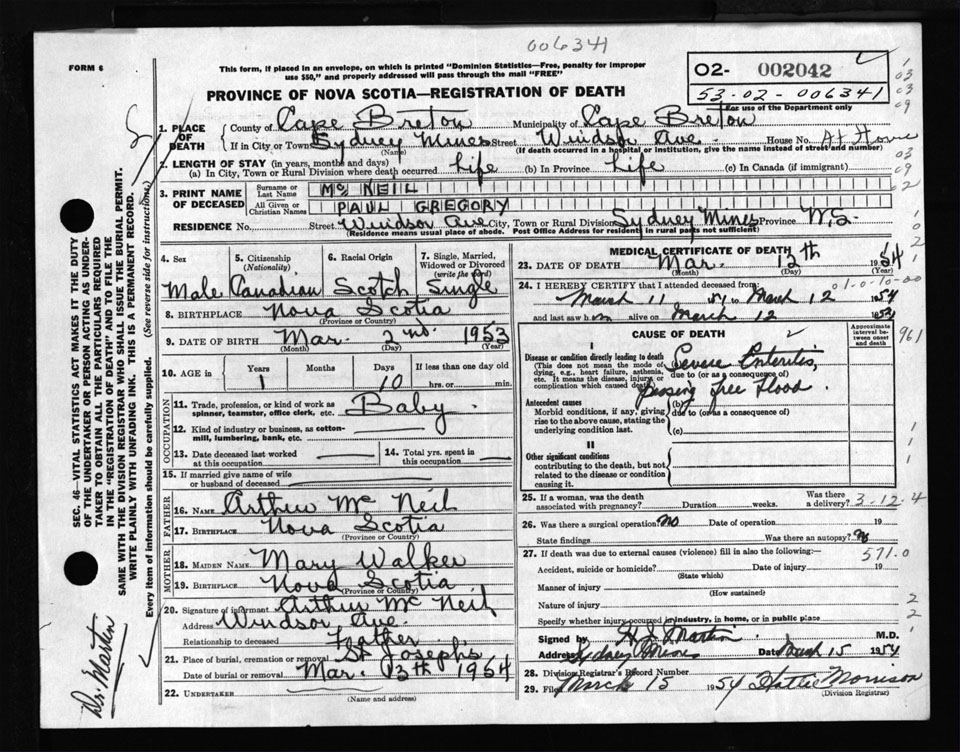 006341
FORM 6
This form, if placed in an envelope, on which is printed "Dominion Statistics—Free, penalty for improper
use $50," and properly addressed will pass through the mail "FREE"
02- 002042
53-02-006341
For use of the Department only
PROVINCE OF NOVA SCOTIA—REGISTRATION OF DEATH
1. PLACE OF DEATH
County of Cape Breton Municipality of Cape Breton
If in City or Town Sydney Mines Street Windsor Ave. House No. At Home
(Name) (If death occurred in a hospital or institution, give the name instead of street and number)
2. LENGTH OF STAY (in years, months and days)
(a) In City, Town or Rural Division where death occurred Life (b) In Province Life (c) In Canada (if immigrant)
3. PRINT NAME OF DECEASED
Surname or Last Name Mc NEIL
All Given or Christian Names PAUL GREGORY
RESIDENCE No. Street Windsor Ave City, Town or Rural Division Sydney Mines Province N.S.
(Residence means usual place of abode. Post Office Address for residents in rural parts not sufficient)
4. Sex 5. Citizenship (Nationality) 6. Racial Origin 7. Single, Married, Widowed or Divorced (write the word)
Male Canadian Scotch Single
8. BIRTHPLACE Nova Scotia
(Province or Country)
9. DATE OF BIRTH Mar. 2nd. 1953
(Month) (Day) (Year)
10. AGE in Years Months Days If less than one day old
1 10 hrs. or min.
OCCUPATION
11. Trade, profession, or kind of work as
spinner, teamster, office clerk, etc. Baby
12. Kind of industry or business, as cotton-
mill, lumbering, bank, etc.
13. Date deceased last worked
at this occupation
14. Total yrs. spent in
this occupation
15. If married give name of wife
or husband of deceased
FATHER
16. NAME Arthur Mc Neil
17. BIRTHPLACE Nova Scotia
(Province or Country)
MOTHER
18. MAIDEN NAME Mary Walker
19. BIRTHPLACE Nova Scotia
(Province or Country)
20. Signature of informant Arthur Mc Neil
Address Windsor Ave.
Relationship to deceased Father
21. Place of burial, cremation or removal St Josephs
Date of burial or removal Mar. 13th 1954
22. UNDERTAKER
(Name and address)
MEDICAL CERTIFICATE OF DEATH
23. DATE OF DEATH Mar. 12th 1954
(Month) (Day) (Year)
24. I HEREBY CERTIFY that I attended deceased from:
01-0-10-00
March 11 to March 12 1954
and last saw him alive on March 12 1954
CAUSE OF DEATH
Approximate interval between onset and death
961
I
Disease or condition directly leading to death
(This does not mean the mode of
dying, e.g., heart failure, asthenia,
etc. It means the disease, injury, or
complication which caused death)
Severe Enteritis,
due to (or as a consequence of)
passing free blood.
Antecedent causes
Morbid conditions, if any, giving
rise to the above cause, stating the
underlying condition last.
(b)
due to (or as a consequence of)
(c)
II
Other significant conditions
contributing to the death, but not
related to the disease or condition
causing it.
25. If a woman, was the death
associated with pregnancy? Duration weeks. Was there a delivery? 3-12-4
26. Was there a surgical operation? no Date of operation 19
State findings Was there an autopsy? no
27. If death was due to external causes (violence) fill in also the following:— 571.0
Accident, suicide or homicide? Date of injury 19
(State which)
Manner of injury
(How sustained)
Nature of injury
Specify whether injury occurred in industry, in home, or in public place
Signed by Martin M.D.
Address Sydney Mines Date March 15 1954
28. Division Registrar's Record Number
29. Filed March 15 1954 Hattie Morrison
(Division Registrar)
SEC. 46—VITAL STATISTICS ACT MAKES IT THE DUTY
OF THE UNDERTAKER OR PERSON ACTING AS UNDER-
TAKER TO OBTAIN ALL THE PARTICULARS REQUIRED
IN THE "REGISTRATION OF DEATH" AND TO FILE THE
SAME WITH THE DIVISION REGISTRAR WHO SHALL ISSUE THE BURIAL PERMIT.
WRITE PLAINLY WITH UNFADING INK. THIS IS A PERMANENT RECORD.
Every item of information should be carefully supplied. (See reverse side for instructions)
Dr. Martin